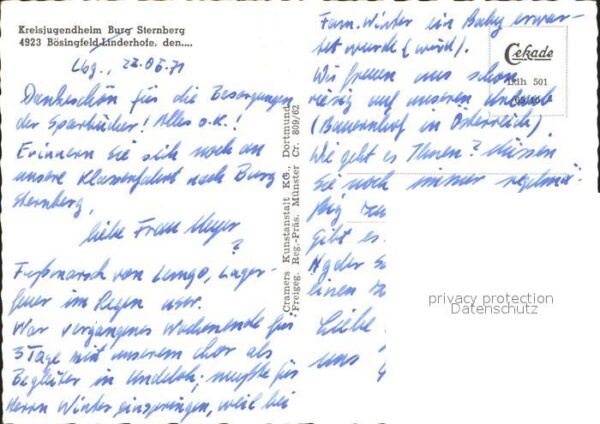 Kreisjugendheim Burg Sternberg
4923 Bösingfeld-Linderhofe, den....
Lbg., 22.06.71
Dankeschön für die Besorgungen
der Sparbücher! Alles o.k.!
Erinnern Sie sich noch an
unsere Klassenfahrt nach Burg
Sternberg,
liebe Frau Meyer
?
Fußmarsch von Lemgo, Lager-
feuer im Regen usw.
War vergangenes Wochenende für
3 Tage mit unserem Chor als
Begleiter in Undeloh; mußte für
Herrn Winter einspringen, weil bei
Cramers Kunstanstalt KG., Dortmund
Freigeg. Reg.-Präs. Münster Cr. 809/62
Fam. Winter ein Baby erwar-
tet wurde (wird).
Wir freuen uns schon
riesig auf unseren Urlaub
(Bauernhof in Österreich)
Wie geht es Ihnen? Müssen
Sie noch immer regelmä-
ßig
Gibt es
linen
Liebe
uns
Cekade
Ldh 501
privacy protection
Datenschutz